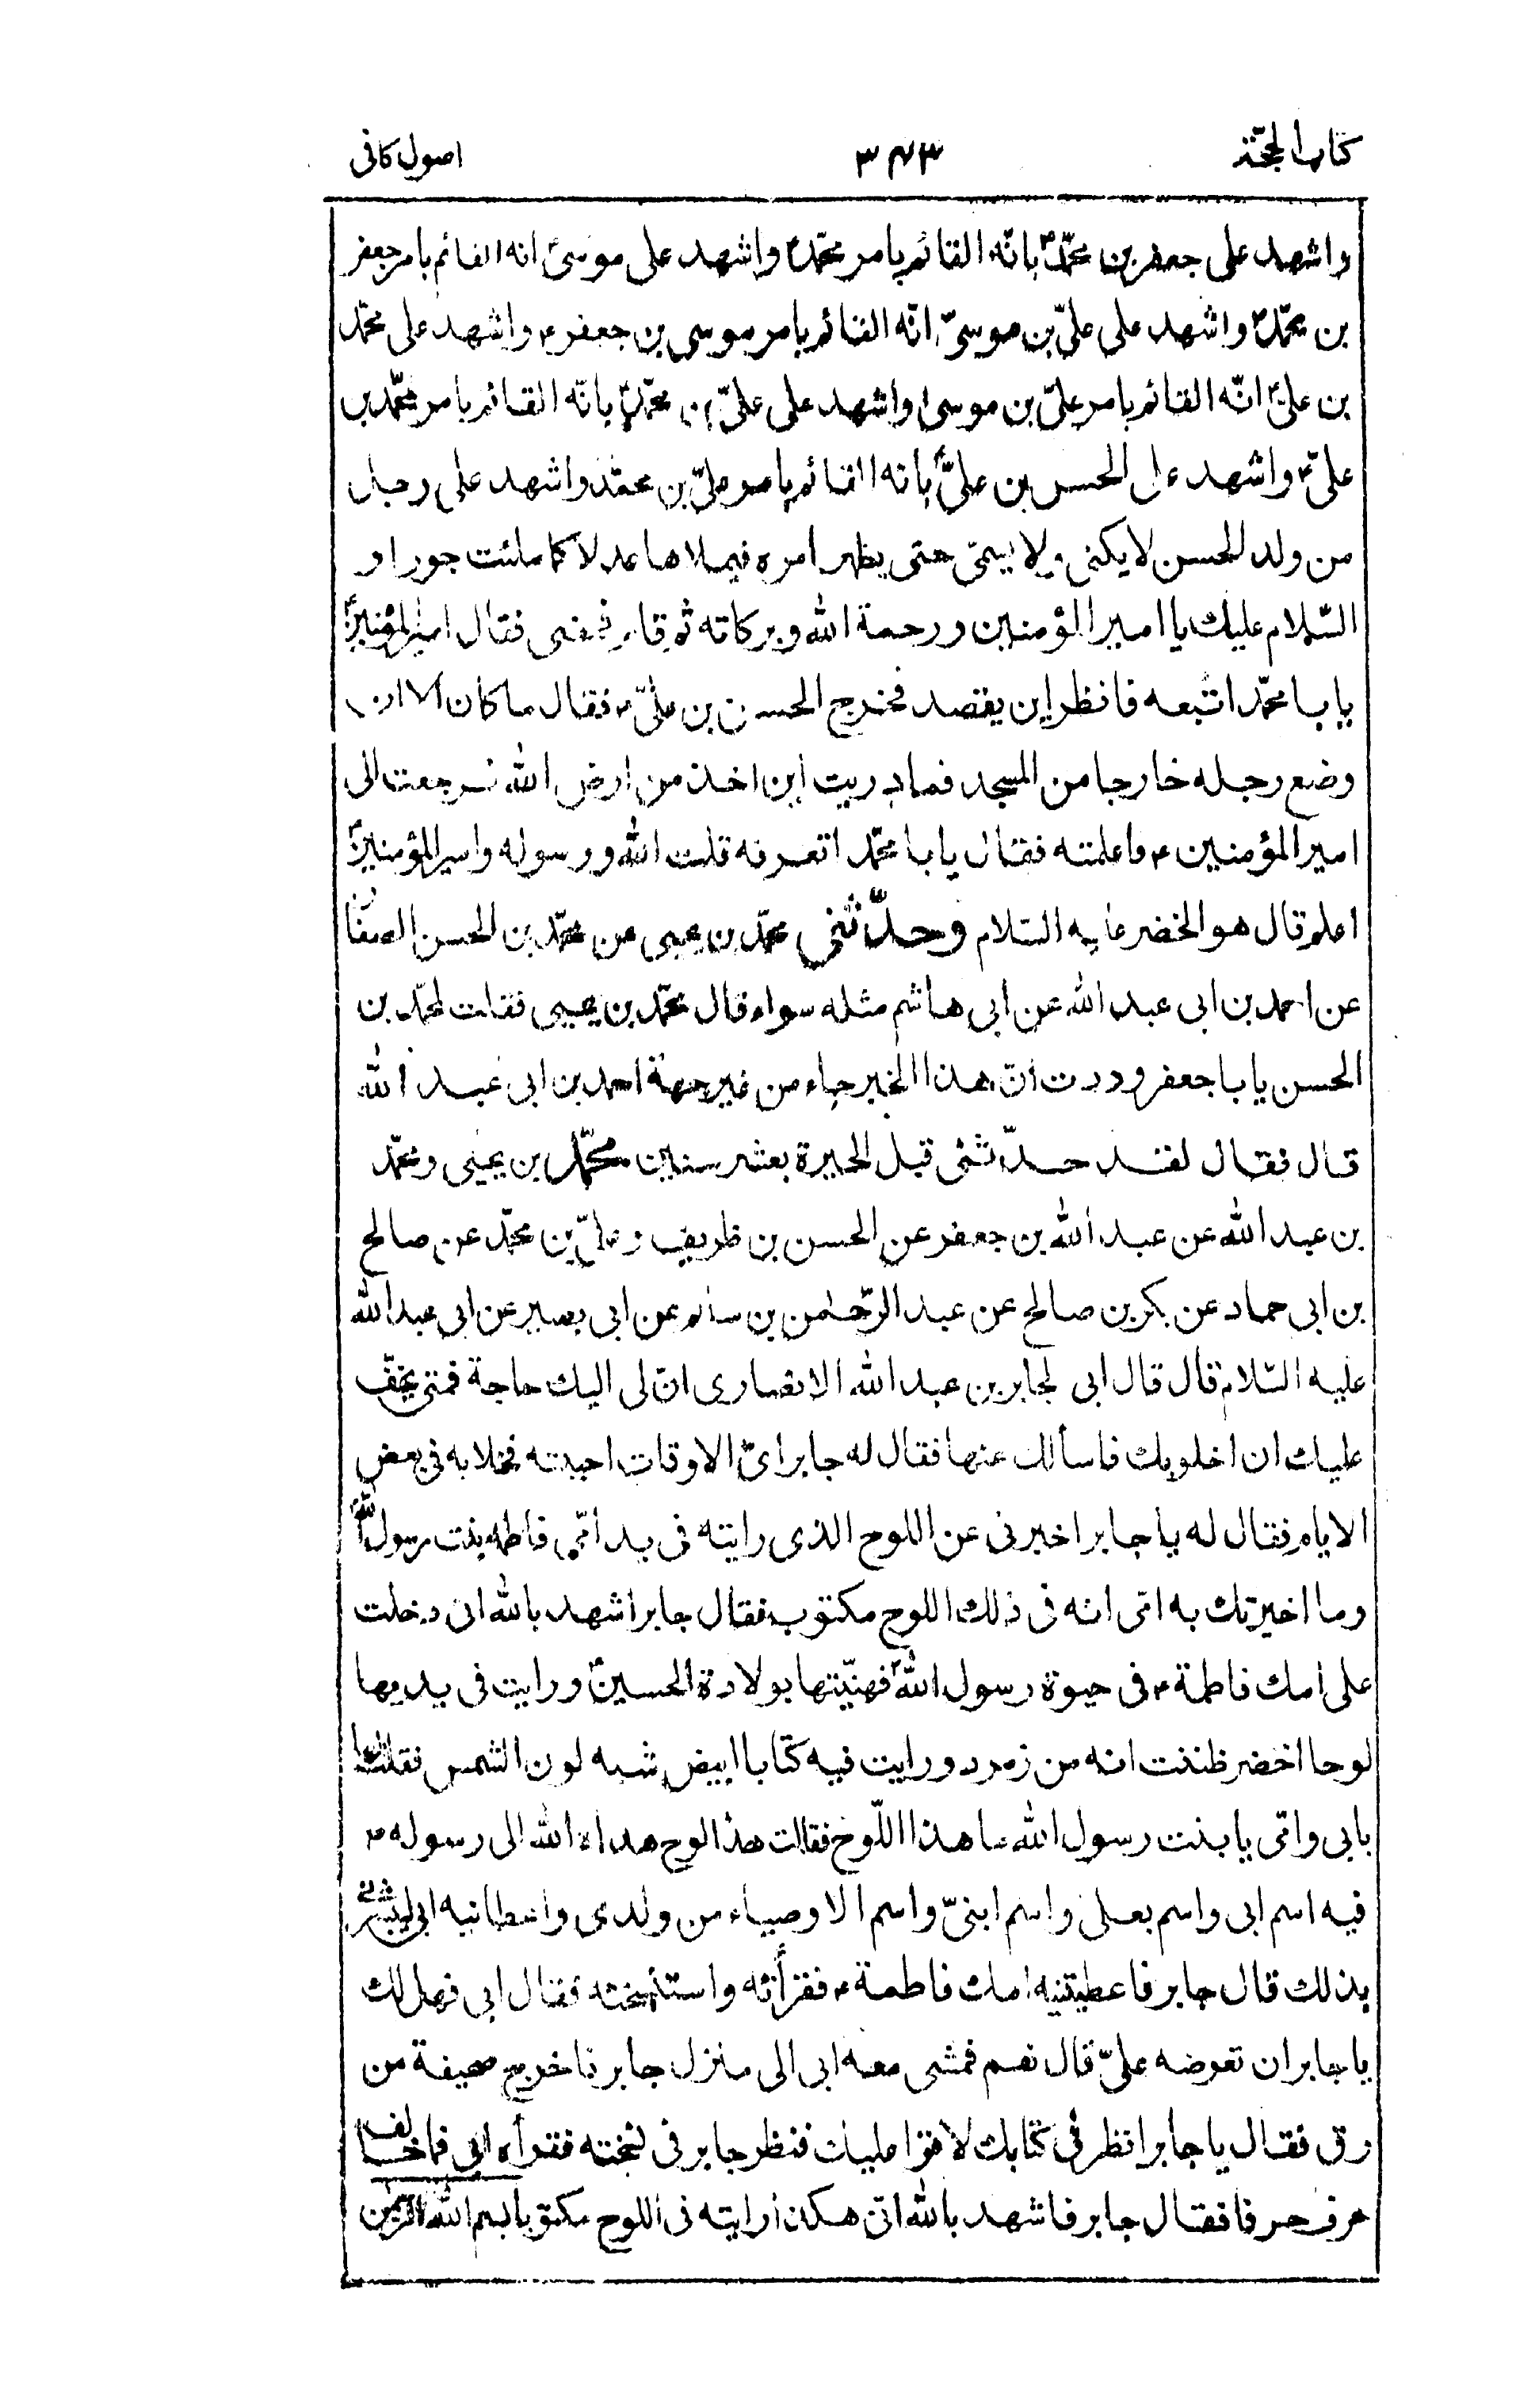 كتاب الحجّة ٣٤٣ اصول كافى
واشهد على جعفر بن محمّدؑ بانّه القائم بامر محمّدؑ واشهد على موسىؑ انه القائم بامر جعفر
بن محمّدؑ واشهد على علىّ بن موسىؑ انّه القائم بامر موسى بن جعفرؑ واشهد على محمّد
بن علىؑ انّه القائم بامر علىّ بن موسى واشهد على علىّ بن محمّدؑ بانّه القائم بامر محمّد بن
علىّؑ واشهد على الحسن بن علىّؑ بانه القائم بامر علىّ بن محمّد واشهد على رجل
من ولد الحسن لا يكنى ولا يسمّى حتى يظهر امره فيملاها عدلا كما ملئت جورا و
السّلام عليك يا امير المؤمنين ورحمة الله وبركاته ثم قام فمضى فقال امير المؤمنينؑ
يا با محمّد اتبعه فانظر اين يقصد فخرج الحسن بن علىّؑ فقال ما كان الا ان
وضع رجله خارجا من المسجد فما دريت اين اخذ من ارض الله فرجعت الى
امير المؤمنينؑ فاعلمته فقال يا با محمّد اتعرفه قلت الله ورسوله وامير المؤمنينؑ
اعلم قال هو الخضر عليه السّلام وحدّثنى محمّد بن يحيى عن محمّد بن الحسن الصفّار
عن احمد بن ابى عبد الله عن ابى هاشم مثله سواء قال محمّد بن يحيى فقلت لمحمّد بن
الحسن يا با جعفر وددت انّ هذا الخبر جاء من غير جهة احمد بن ابى عبد الله
قال فقال لقد حدّثنى قبل الحيرة بعشر سنين محمّد بن يحيى ومحمّد
بن عبد الله عن عبد الله بن جعفر عن الحسن بن ظريف وعلىّ بن محمّد عن صالح
بن ابى حماد عن بكر بن صالح عن عبد الرّحمن بن سالم عن ابى بصير عن ابى عبد الله
عليه السّلام قال قال ابى لجابر بن عبد الله الانصارى انّ لى اليك حاجة فمتى يخفّ
عليك ان اخلو بك فاسألك عنها فقال له جابر اىّ الاوقات احببته فخلا به فى بعض
الايام فقال له يا جابر اخبرنى عن اللوح الذى رايته فى يد امّى فاطمة بنت رسول اللهؐ
وما اخبرتك به امّى انه فى ذلك اللوح مكتوب فقال جابر اشهد بالله انى دخلت
على امك فاطمةؑ فى حيوة رسول اللهؐ فهنّيتها بولادة الحسينؑ ورايت فى يديها
لوحا اخضر ظننت انه من زمرد ورايت فيه كتابا ابيض شبه لون الشمس فقلت لها
بابى وامّى يا بنت رسول الله ما هذا اللّوح فقالت هذا لوح هداه الله الى رسولهؐ
فيه اسم ابى واسم بعلى واسم ابنىّ واسم الاوصياء من ولدى واعطانيه ابى ليبشرنى
بذلك قال جابر فاعطيتنيه امك فاطمةؑ فقرأته واستنسخته فقال ابى فهل لك
يا جابر ان تعرضه علىّ قال نعم فمشى معه ابى الى منزل جابر فاخرج صحيفة من
رق فقال يا جابر انظر فى كتابك لاقرا عليك فنظر جابر فى نسخته فقرأه ابى فما خالف
حرف حرفا فقال جابر فاشهد بالله انّى هكذا رايته فى اللوح مكتوبا بسم الله الرّحمن